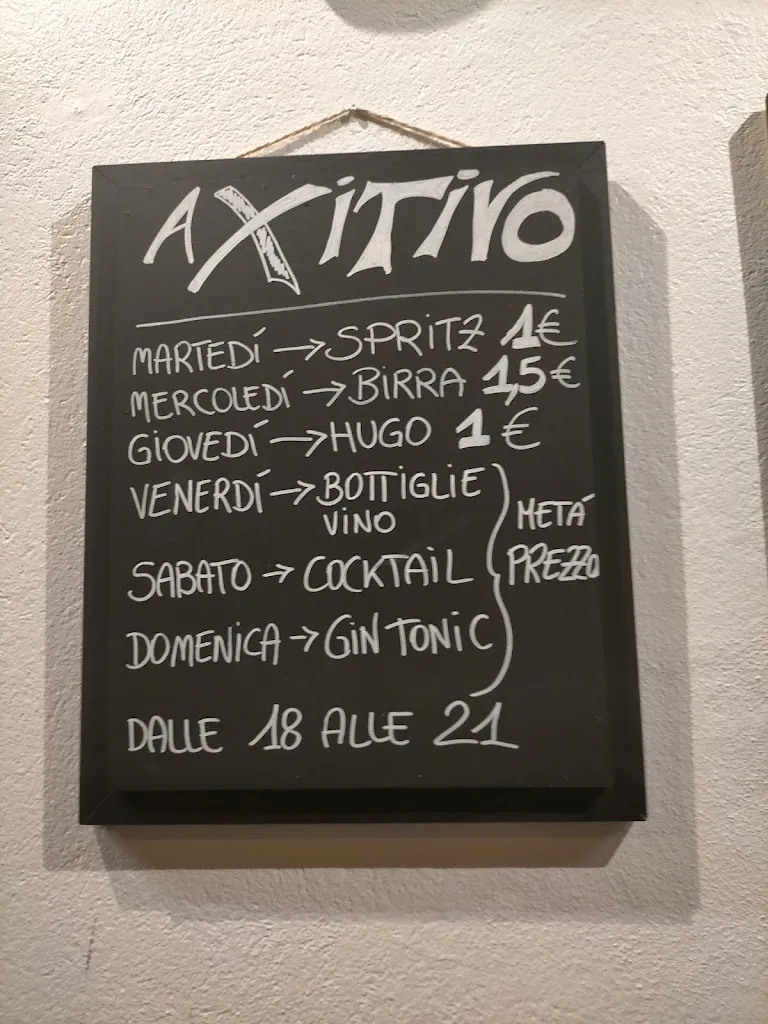 AXITIVO
MARTEDÍ → SPRITZ 1€
MERCOLEDÍ → BIRRA 1,5€
GIOVEDÍ → HUGO 1€
VENERDÍ → BOTTIGLIE
VINO
METÁ
PREZZO
SABATO → COCKTAIL
DOMENICA → GIN TONIC
DALLE 18 ALLE 21